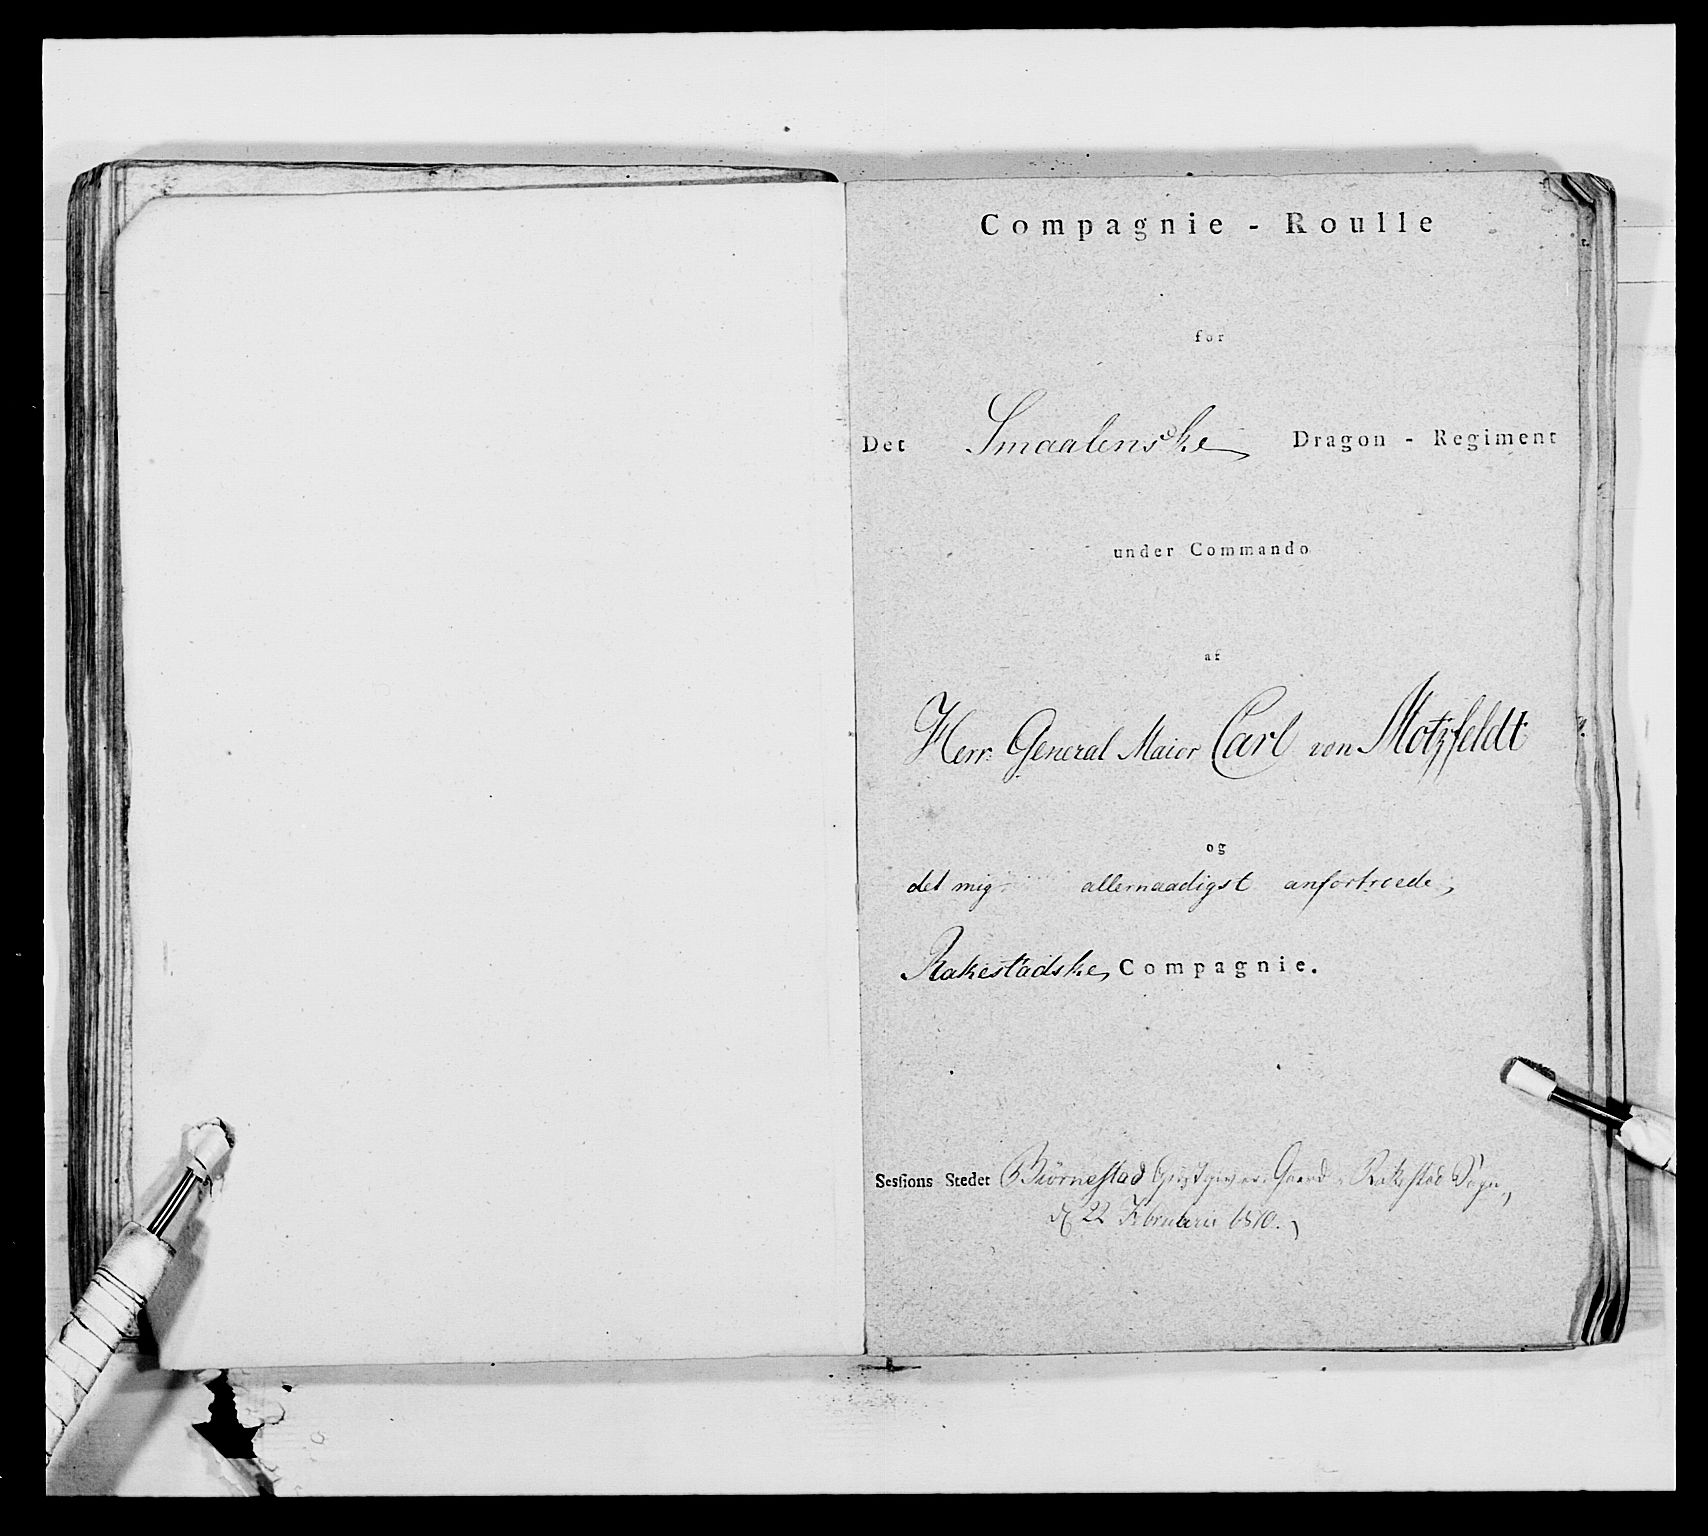 Compagnie - Roulle
for
Det Smaalenske Dragon - Regiment
under Commando
af
Herr General Maior Carl von Motzfeldt
og
det mig allernaadigst anfortroede,
Rakestadske Compagnie.
Sessions Stedet Biørnestad Giestgiver Gaard i Rakestad Sogn,
d 22 Februarii 1810.